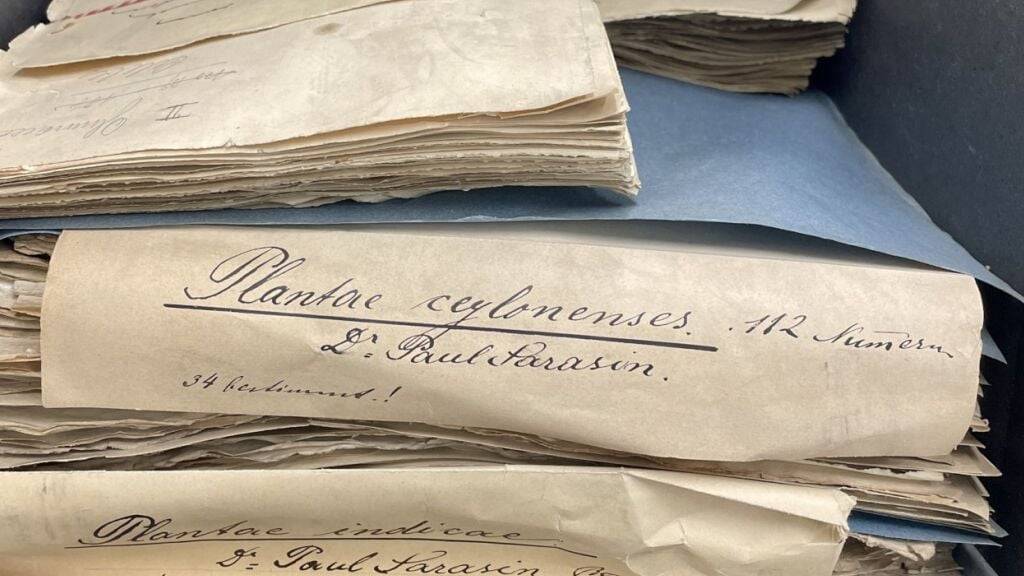 II
Plantae ceylonenses. 112 Numern
Dr. Paul Sarasin.
34 bestimmt.!
Plantae indicae
Dr. Paul Sarasin